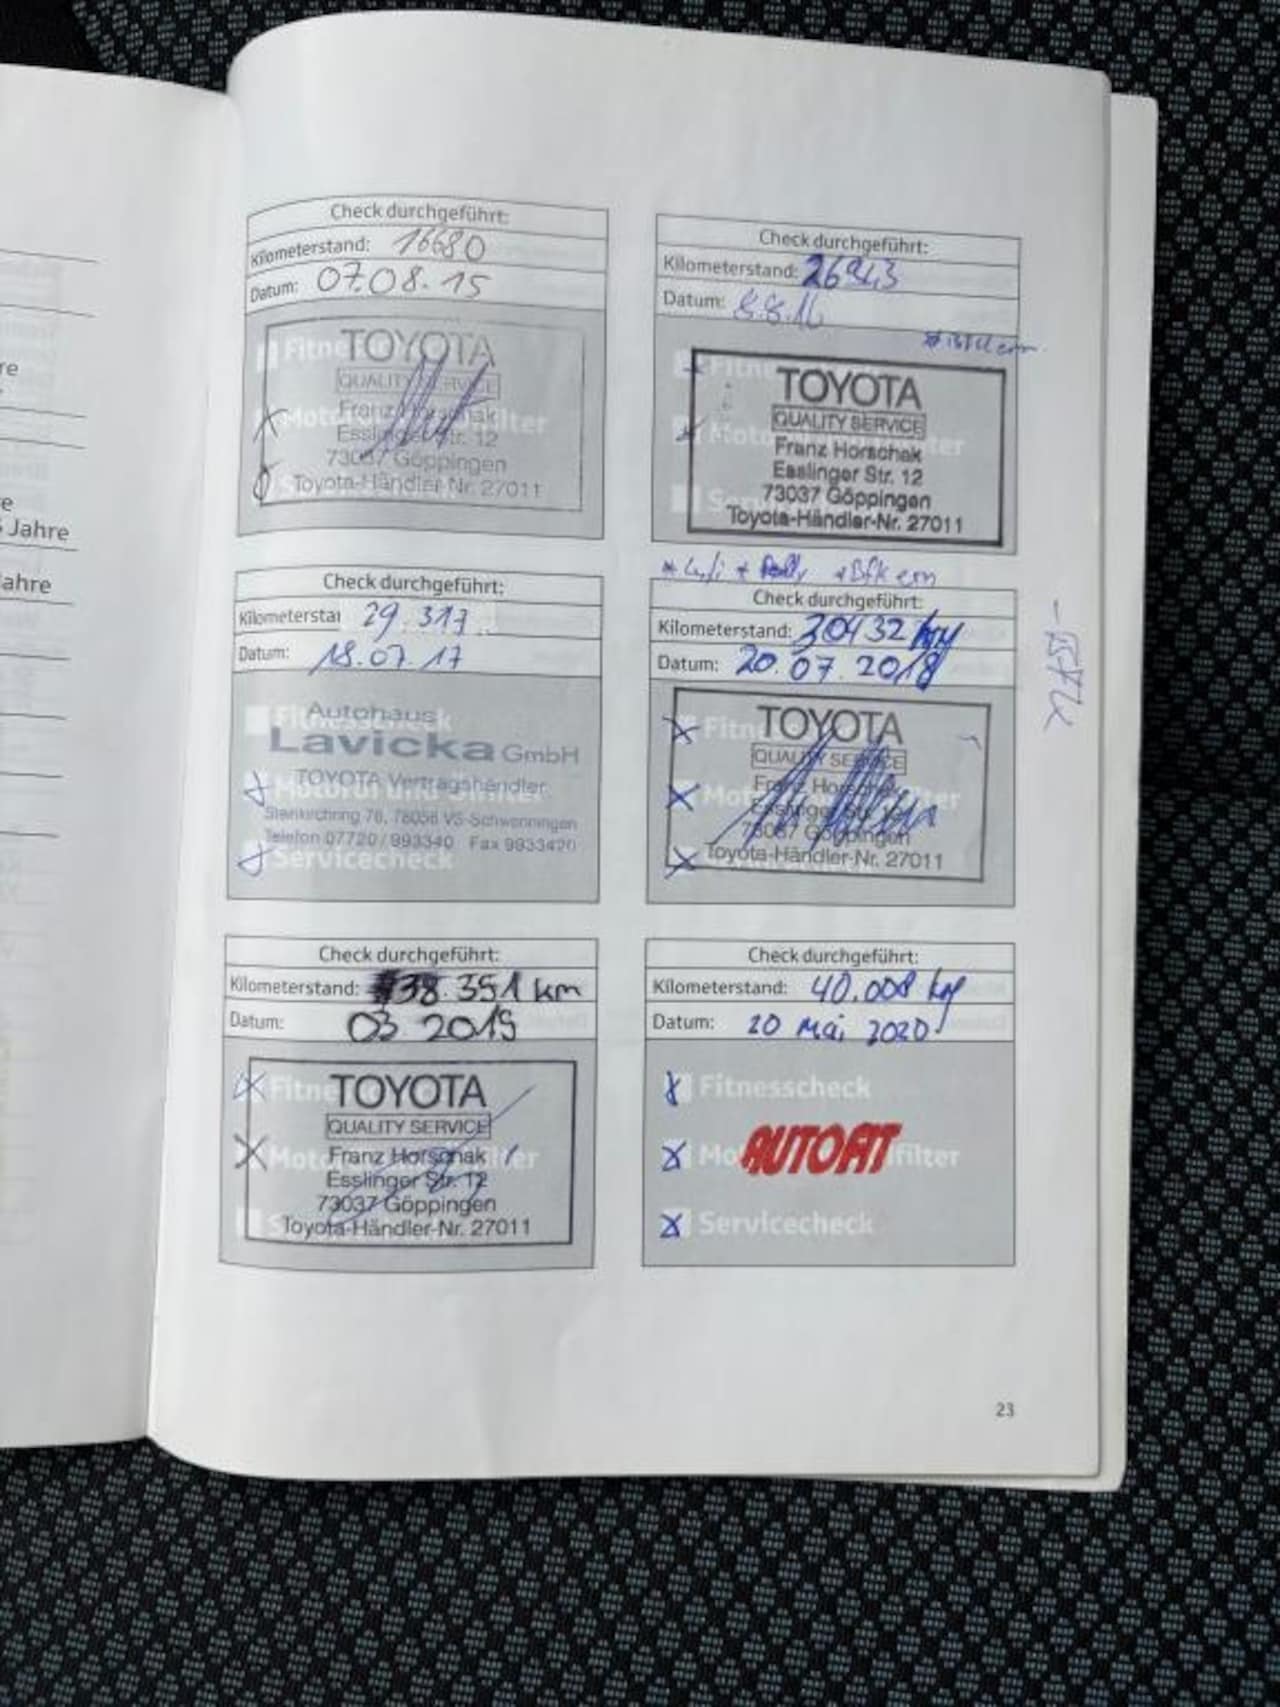 re
re
5 Jahre
ahre
Check durchgeführt:
Kilometerstand: 16680
Datum: 07.08.15
Fitne
TOYOTA
QUALITY SERVICE
Motor
filter
Franz Horschak
Esslinger Str. 12
73037 Göppingen
Toyota-Händler Nr. 27011
Check durchgeführt:
Kilometerstand: 26943
Datum: 8.8.16
Fitne
TOYOTA
QUALITY SERVICE
Moto
Franz Horschak
Esslinger Str. 12
Ser
73037 Göppingen
Toyota-Händler-Nr. 27011
Check durchgeführt:
Kilometerstan 29.317
Datum: 18.07.17
Autohaus
Lavicka GmbH
TOYOTA Vertragshändler
Steinkirchring 76, 78056 VS-Schwenningen
Telefon 07720/993340 Fax 9933420
Servicecheck
Check durchgeführt:
Kilometerstand: 30432 km
Datum: 20.07.2018
Fitn
TOYOTA
QUALITY SERVICE
Mo
Franz Horschak
Esslinger Str. 12
73037 Göppingen
Toyota-Händler-Nr. 27011
Check durchgeführt:
Kilometerstand: 38.351 km
Datum: 03 2019
Fitne
TOYOTA
QUALITY SERVICE
Moto
Franz Horschak
Esslinger Str. 12
73037 Göppingen
Toyota-Händler-Nr. 27011
Check durchgeführt:
Kilometerstand: 40.008 km
Datum: 20 Mai 2020
Fitnesscheck
Mo AUTOFIT filter
Servicecheck
23